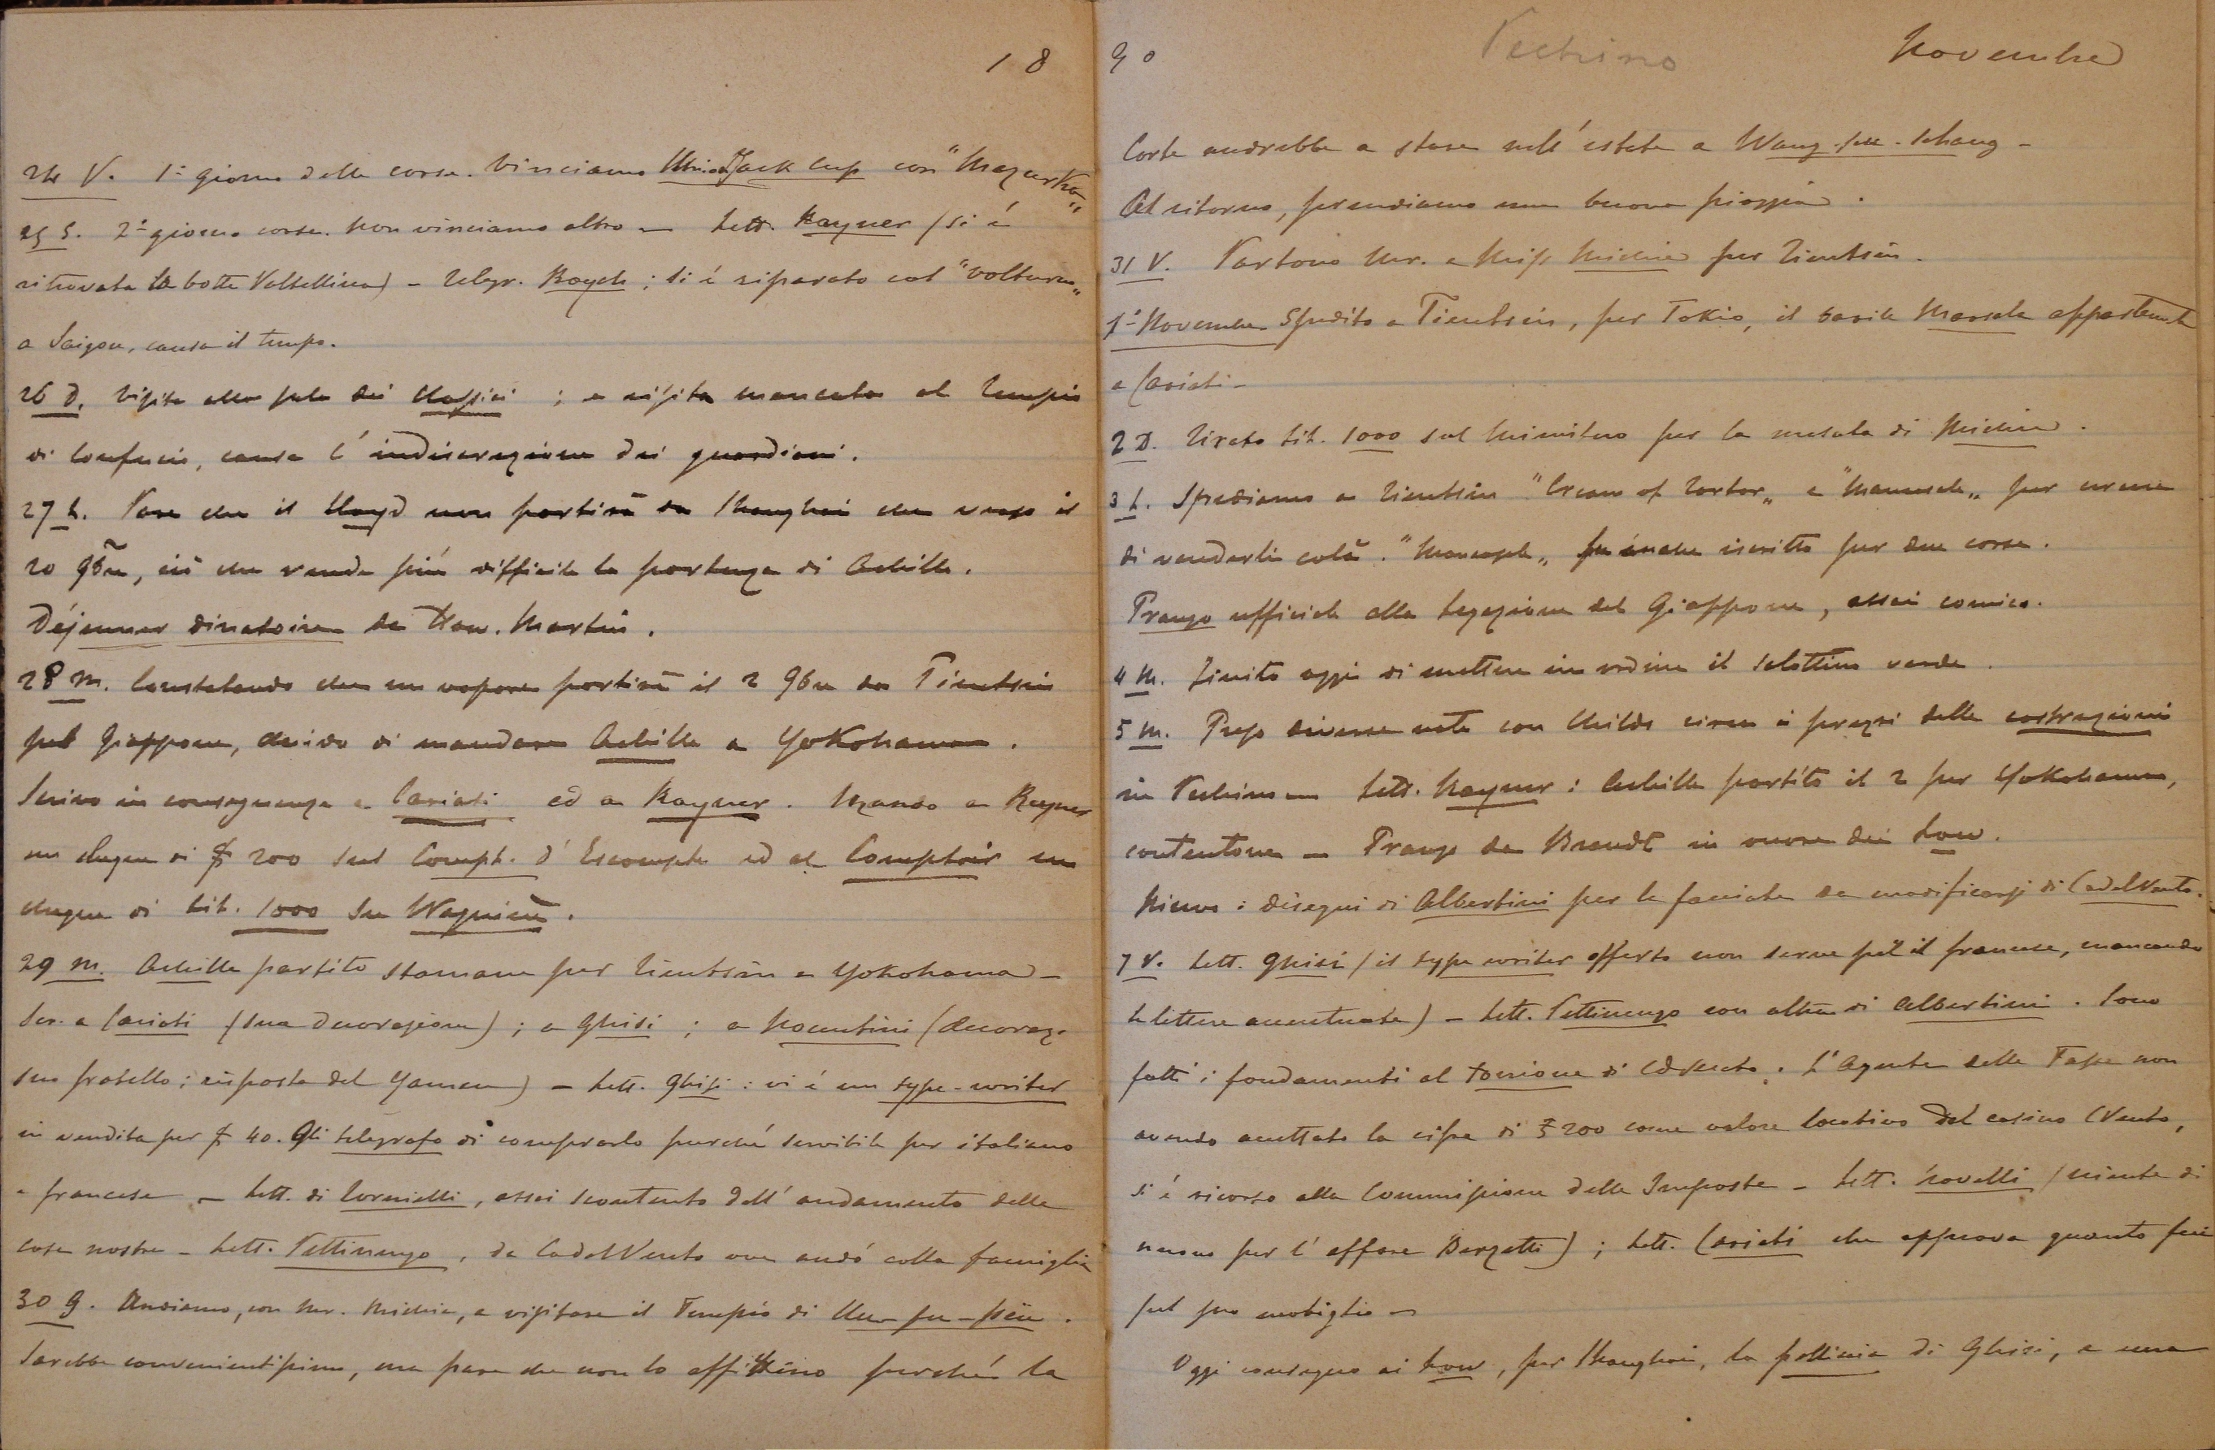 18
24 V. 1º giorno delle corse. Vinciamo Union Jack Cup con "Mazurka"
25 S. 2º giorno corse. Non vinciamo altro — Lett. Rayner (si è
ritrovata la botte Valtellina) — Telegr. Boych ; si è riparato col "Volturno"
a Saigon, causa il tempo.
26 D. Visita alla sala dei Classici ; e visita mancata al Tempio
di Confucio, causa l'indiscrezione dei guardiani.
27 L. Pare che il Lloyd non partirà da Shanghai che verso il
20 9bre, ciò che rende più difficile la partenza di Achille.
Déjeuner dinatoire da How. Martin.
28 M. Constatando che un vapore partirà il 2 9bre da Tientsin
pel Giappone, decido di mandare Achille a Yokohama.
Scrivo in conseguenza a Cariati ed a Rayner. Mando a Rayner
un chèque di $ 200 sul Compt. d'Escompte ed al Comptoir un
chèque di Lit. 1000 su Wagnière.
29 M. Achille partito stamane per Tientsin e Yokohama —
Scr. a Cariati (sua decorazione) ; a Ghisi ; a Nocentini (decoraz.
suo fratello ; risposta del Yamen) — Lett. Ghisi : vi è un type-writer
in vendita per $ 40. Gli telegrafo di comprarlo purché servibile per italiano
e francese — Lett. di Tornielli, assai scontento dell'andamento delle
cose nostre — Lett. Pettinengo, da CadelVento ove andò colla famiglia
30 G. Andiamo, con Mr. Michie, a visitare il Tempio di
Sarebbe convenientissimo, ma pare che non lo affittino perché la
90 Pechino Novembre
Corte andrebbe a stare nell'estate a Wang-
Al ritorno, prendiamo una buona pioggia.
31 V. Partono Mr. e Miss Michie per Tientsin.
1º Novembre Spedito a Tientsin, per Tokio, il barile Marsala appartenente
a Cariati —
2 D. Tirato Lit. 1000 sul Ministero per la mesata di Michie.
3 L. Spediamo a Tientsin "Cream of Tartar" e "Mameseck" per cercare
di venderli colà. "Mameseck" fu anche iscritto per due corse.
Pranzo ufficiale alla Legazione del Giappone, assai comico.
4 M. Finito oggi di mettere in ordine il salottino verde.
5 M. Preso diverse note con Childs circa i prezzi delle costruzioni
in Pechino — Lett. Rayner : Achille partito il 2 per Yokohama,
contentone — Pranzo da Brandt in onore dei Low.
Ricevo i disegni di Albertini per la facciata da modificarsi di CadelVento.
7 V. Lett. Ghisi (il type writer offerto non serve pel il francese, mancando
le lettere accentuate) — Lett. Pettinengo con altra di Albertini. Sono
fatti i fondamenti al torrione di CdVento. L'Agente delle Tasse non
avendo accettato la cifra di £ 200 come valore locativo del casino CVento,
si è ricorso alla Commissione delle Imposte — Lett. Novelli (niente di
nuovo per l'affare Barzetti) ; Lett. Cariati che approva quanto feci
pel suo mobiglio —
Oggi consegno ai Low, per Shanghai, la pelliccia di Ghisi, e una